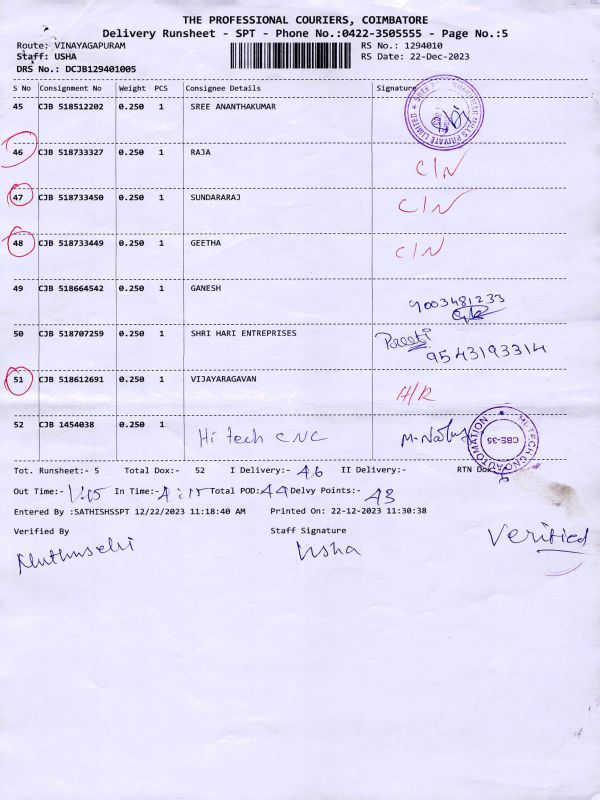 THE PROFESSIONAL COURIERS, COIMBATORE
Delivery Runsheet - SPT - Phone No.:0422-3505555 - Page No.:5
Route: VINAYAGAPURAM RS No.: 1294010
Staff: USHA RS Date: 22-Dec-2023
DRS No.: DCJB129401005
S No Consignment No Weight PCS Consignee Details Signature
45 CJB 518512202 0.250 1 SREE ANANTHAKUMAR
MILLS PRIVATE LIMITED
46 CJB 518733327 0.250 1 RAJA C/N
47 CJB 518733450 0.250 1 SUNDARARAJ C/N
48 CJB 518733449 0.250 1 GEETHA C/N
49 CJB 518664542 0.250 1 GANESH 9003481233
50 CJB 518707259 0.250 1 SHRI HARI ENTREPRISES 9543193314
51 CJB 518612691 0.250 1 VIJAYARAGAVAN H/R
52 CJB 1454038 0.250 1 Hi tech CNC
HI-TECH CNC AUTOMATION CBE-35
Tot. Runsheet:- 5 Total Dox:- 52 I Delivery:- 46 II Delivery:- RTN Dox:-
Out Time:- In Time:- Total POD:- 44 Delvy Points:- 43
Entered By :SATHISHSSPT 12/22/2023 11:18:40 AM Printed On: 22-12-2023 11:30:38
Verified By Staff Signature
Muthuselvi Usha Verified